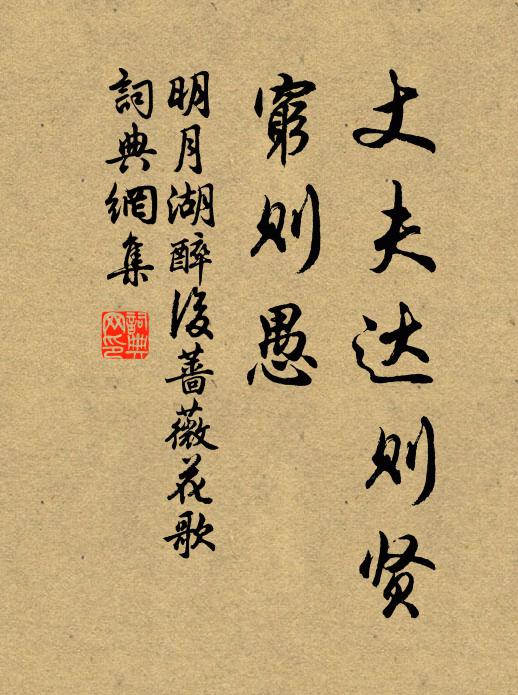 丈夫达则贤
窮则愚
明月湖醉後蔷薇花歌
詞典網集
詞典网印